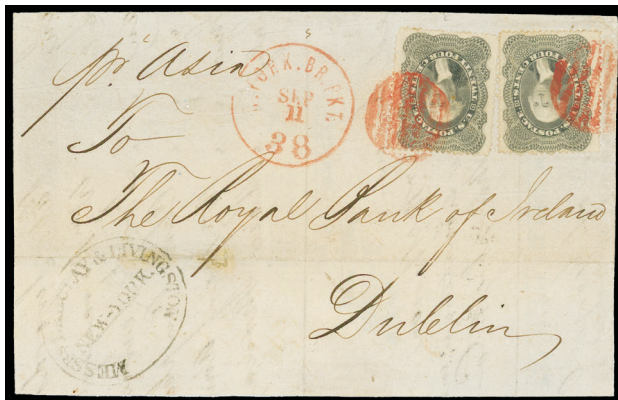 pr Asia
YORK. BR. PKT.
SEP
11
38
U.S. POSTAGE
U.S. POSTAGE
To
The Royal Bank of Ireland
Dublin
& LIVINGSTON
NEW-YORK.